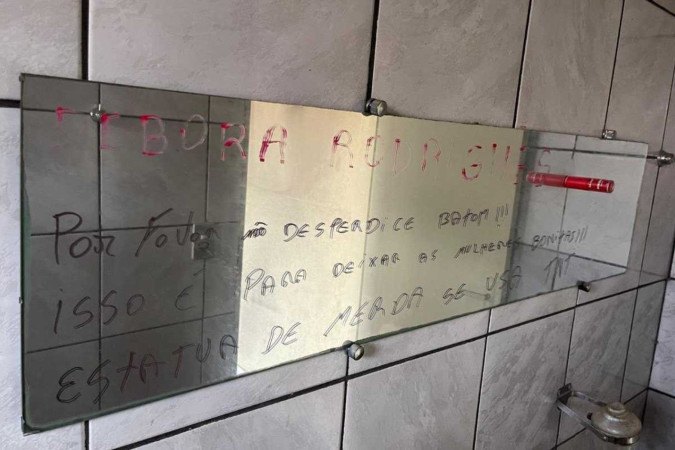 DEBORA RODRIGUES
POR FAVOR não DESPERDICE BATOM!!!
ISSO É PARA DEIXAR AS MULHERES BONITAS!!!
ESTATUA DE MERDA SE USA TNT